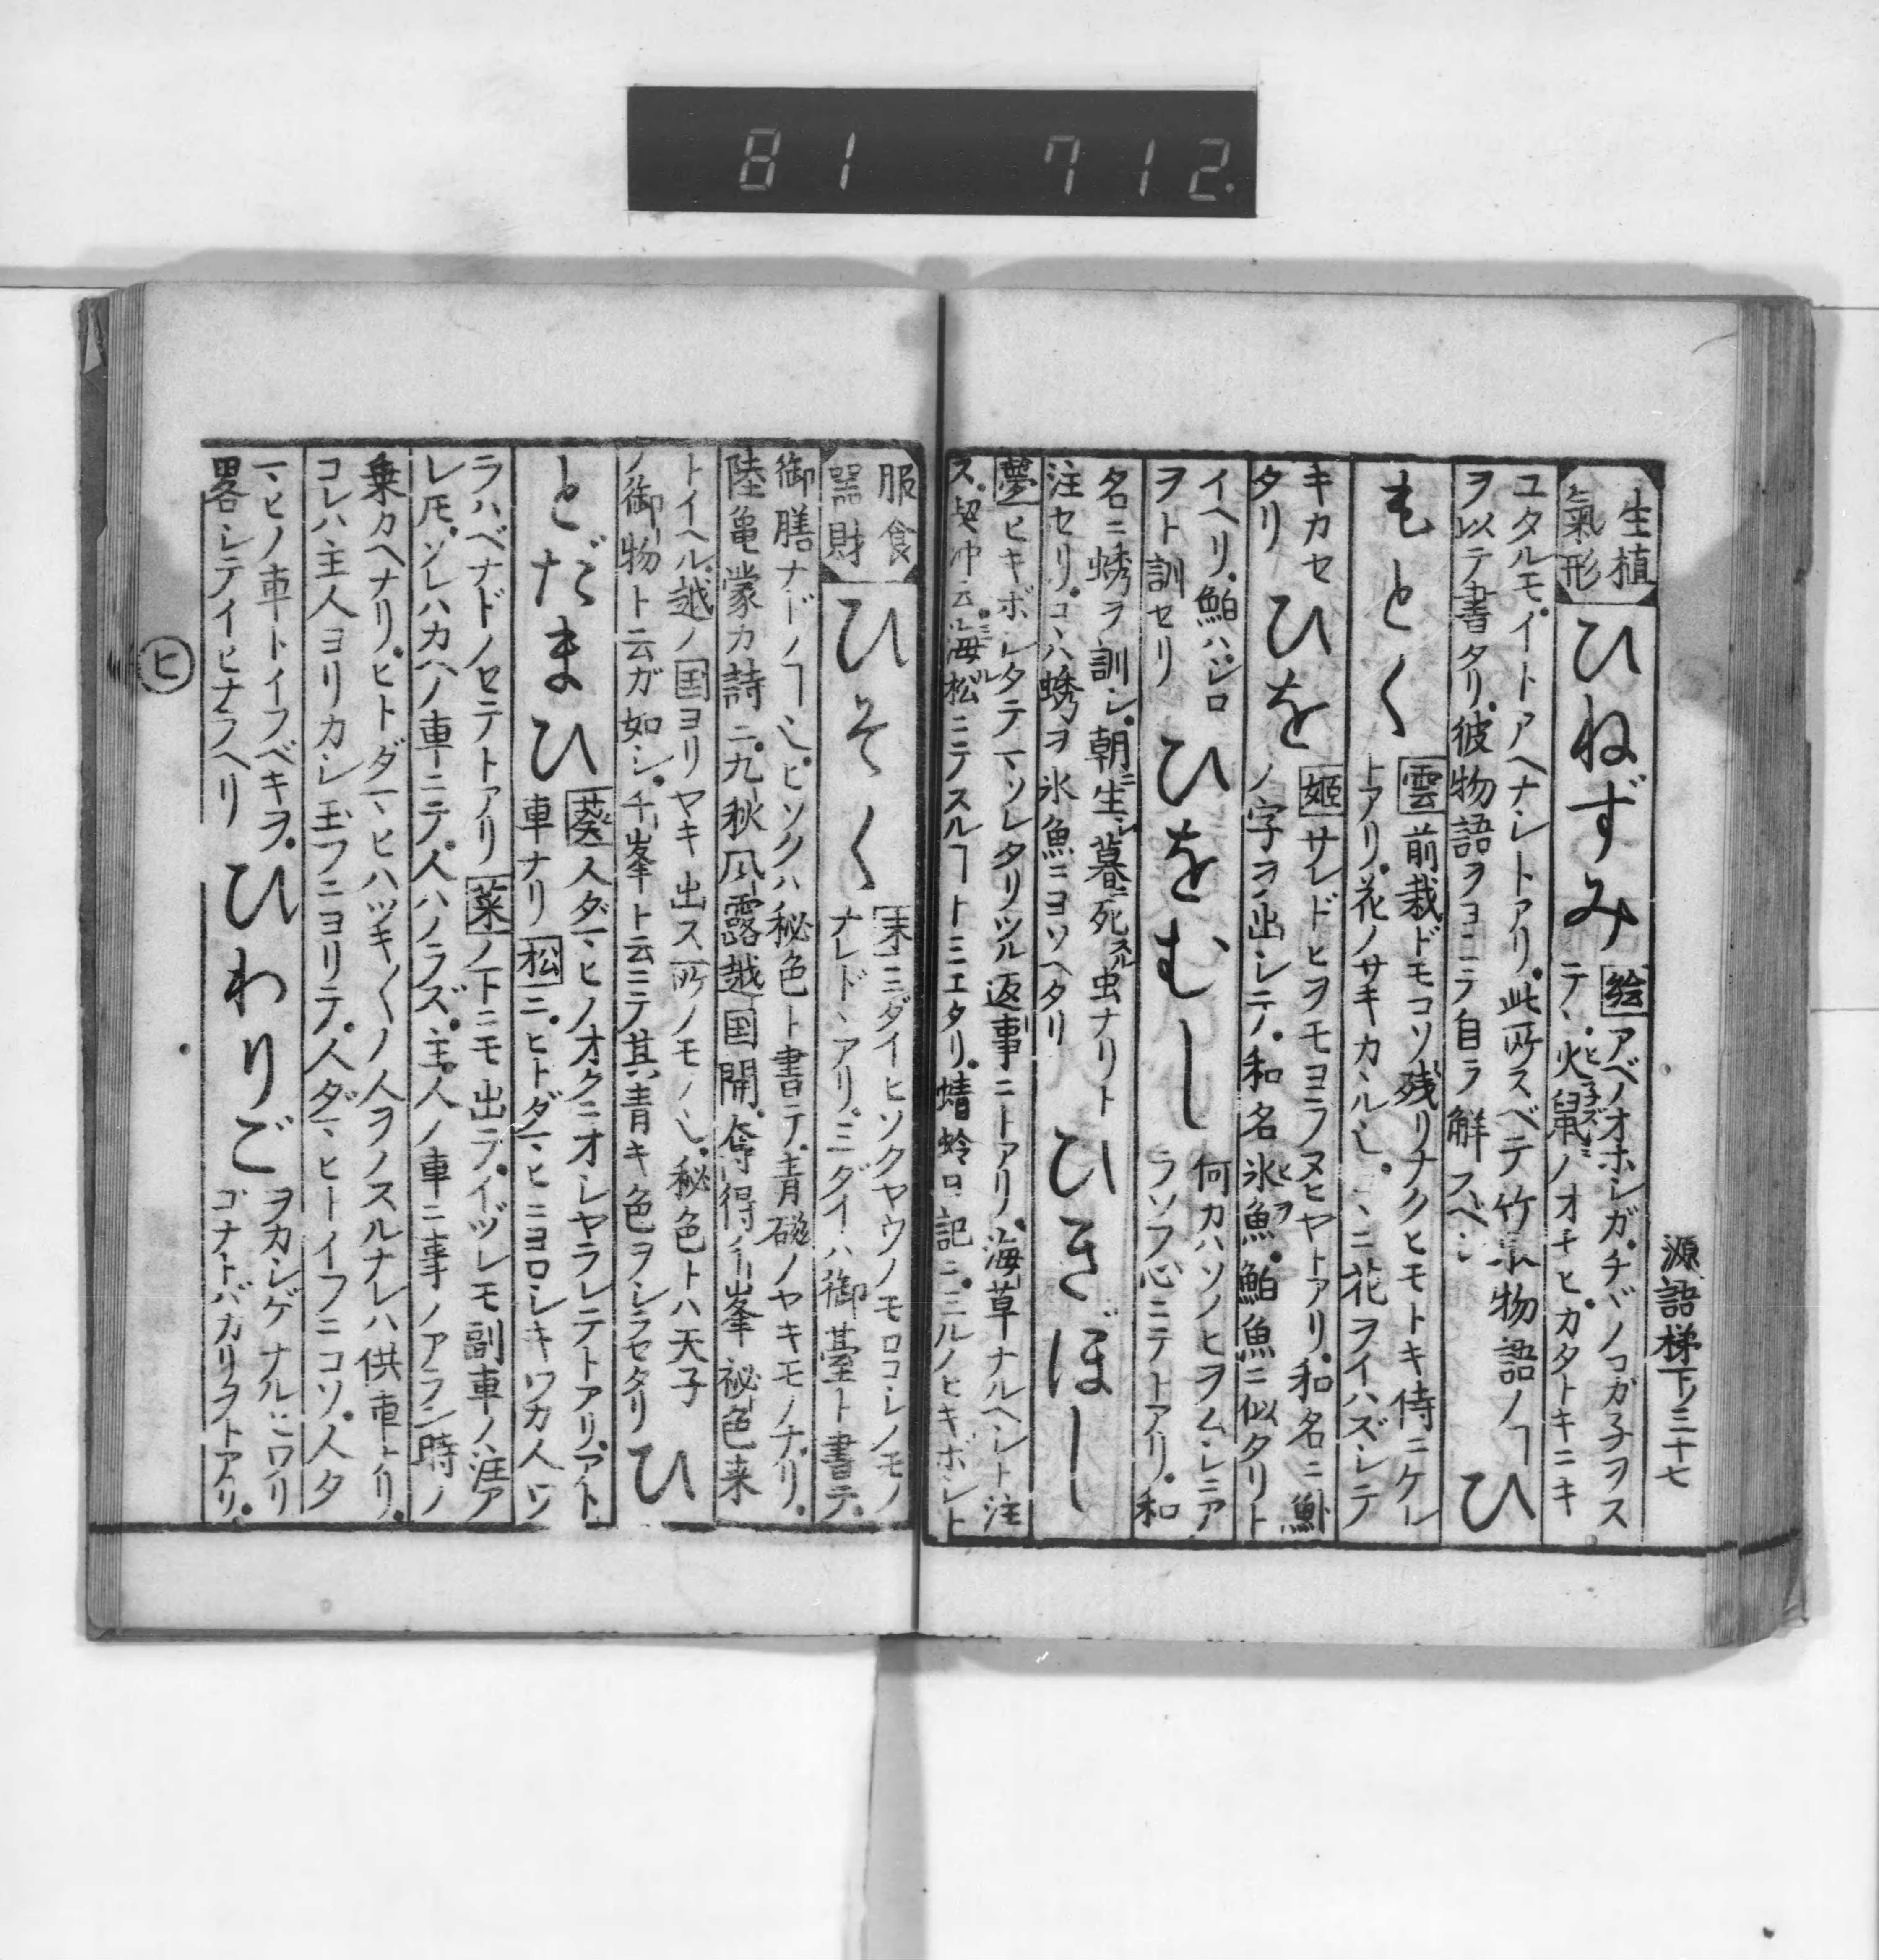 81 712.
源語梯下ノ三十七
生植
氣形
ひねずみ
絵アベノオホシガチヾノコガ子ヲス
テヽ火鼠ノオモヒカタトキニキ
ユタルモイトアヘナシトアリ此所スベテ竹取物語ノヿ
ヲ以テ書タリ彼物語ヲヨミテ自ラ解スベシ
ひ
もとく
雲前栽ドモコソ残リナクヒモトキ侍ニケレ
トアリ花ノサキカヽル也コヽニ花ヲイハズシテ
キカセ
タリ
ひを
姫サレドヒヲモヨラヌヒヤトアリ和名ニ
ノ字ヲ出シテ和名氷魚鮊魚ニ似タリト
イヘリ鮊ハシロ
ヲト訓セリ
ひをむし
何カハソノヒヲムシニア
ラソフ心ニテトアリ和
名ニ蜏ヲ訓シ朝ニ生レ暮ニ死スル虫ナリト
注セリコヽハ蜏ヲ氷魚ニヨソヘタリ
ひきぼし
夢ヒキボシタテマツレタリツル返事ニトアリ海草ナルヘシト注
ス契沖云海松ニテスルヿトミエタリ蜻蛉日記ニミルノヒキボシト
服食
器財
ひそく
末ミダイヒソクヤウノモロコシノモノ
ナレドヽアリミダイハ御臺ト書テ
御膳ナドノヿ也ヒソクハ秘色ト書テ青磁ノヤキモノナリ
陸亀蒙カ詩ニ九秋風露越国開奪得千峯祕色来
トイヘル越ノ国ヨリヤキ出ス所ノモノ也秘色トハ天子
ノ御物ト云ガ如シ千峯ト云ミテ其青キ色ヲシラセタリ
ひ
とだまひ
葵人ダマヒノオクニオシヤラレテトアリアト
車ナリ松ニヒトダマヒニヨロシキワカ人ツ
ラハベナドノセテトアリ菜ノ下ニモ出ライヅレモ副車ノ注ア
レ𪜈ソレハカヘノ車ニテ人ハノラズ主人ノ車ニ事ノアラン時ノ
乗カヘナリヒトダマヒハツキ〱ノ人ヲノスルナレハ供車ナリ
コレハ主人ヨリカシ玉フニヨリテ人ダマヒトイフニコソ人タ
マヒノ車トイフベキヲ
畧シテイヒナラヘリ
ひわりご
ヲカシゲナルヒワリ
ゴナトバカリヲトアリ
ヒ